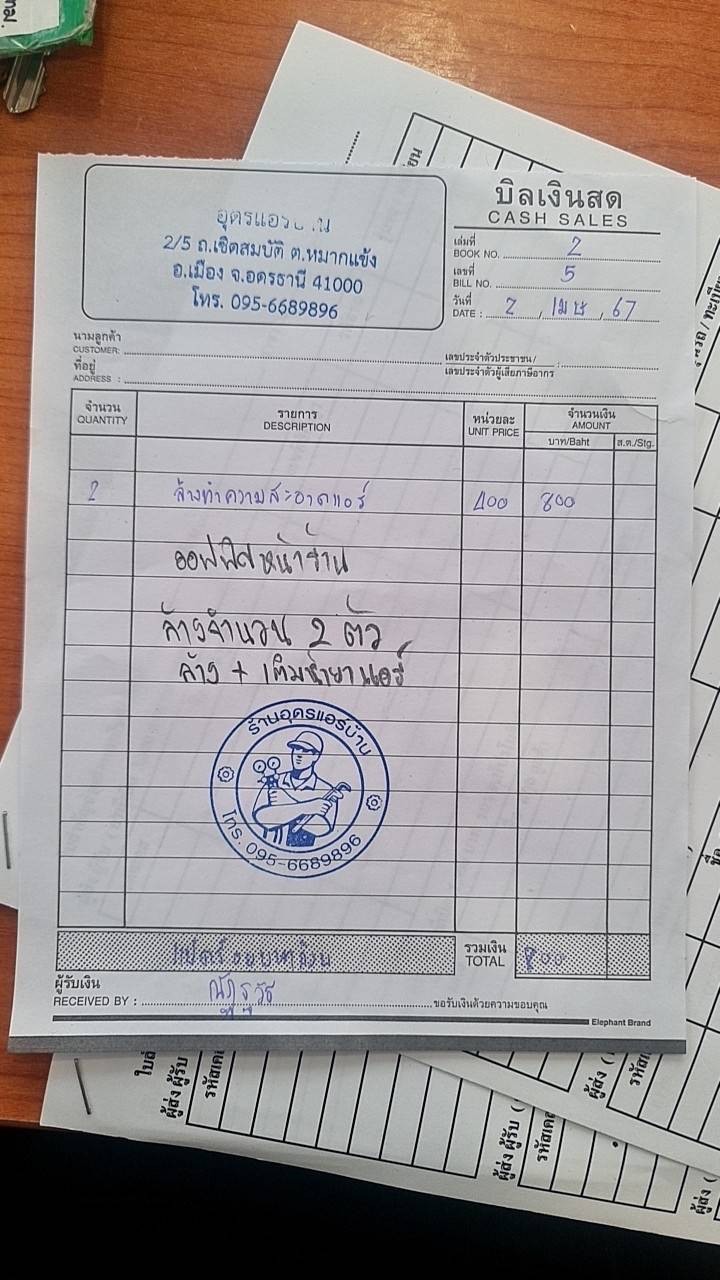 บิลเงินสด
CASH SALES
อุดรแอร์บ้าน
2/5 ถ.เชิดสมบัติ ต.หมากแข้ง
อ.เมือง จ.อุดรธานี 41000
โทร. 095-6689896
เล่มที่
BOOK NO. 2
เลขที่
BILL NO. 5
วันที่
DATE : 2 , เมษ , 67
นามลูกค้า
CUSTOMER:
เลขประจำตัวประชาชน/
เลขประจำตัวผู้เสียภาษีอากร
ที่อยู่
ADDRESS :
จำนวน รายการ หน่วยละ จำนวนเงิน
QUANTITY DESCRIPTION UNIT PRICE AMOUNT
บาท/Baht ส.ต./Stg.
2 ล้างทำความสะอาดแอร์ 400 800
ออฟฟิศหน้าร้าน
ล้างจำนวน 2 ตัว
ล้าง + เติมน้ำยาแอร์
ร้านอุดรแอร์บ้าน
โทร. 095-6689896
แปดร้อยบาทถ้วน รวมเงิน 800
TOTAL
ผู้รับเงิน
RECEIVED BY : ขอรับเงินด้วยความขอบคุณ
Elephant Brand
ใบส่
ผู้ส่ง ผู้รับ
ผู้ส่ง ผู้รับ (
ผู้ส่ง (
ผู้ส่ง (